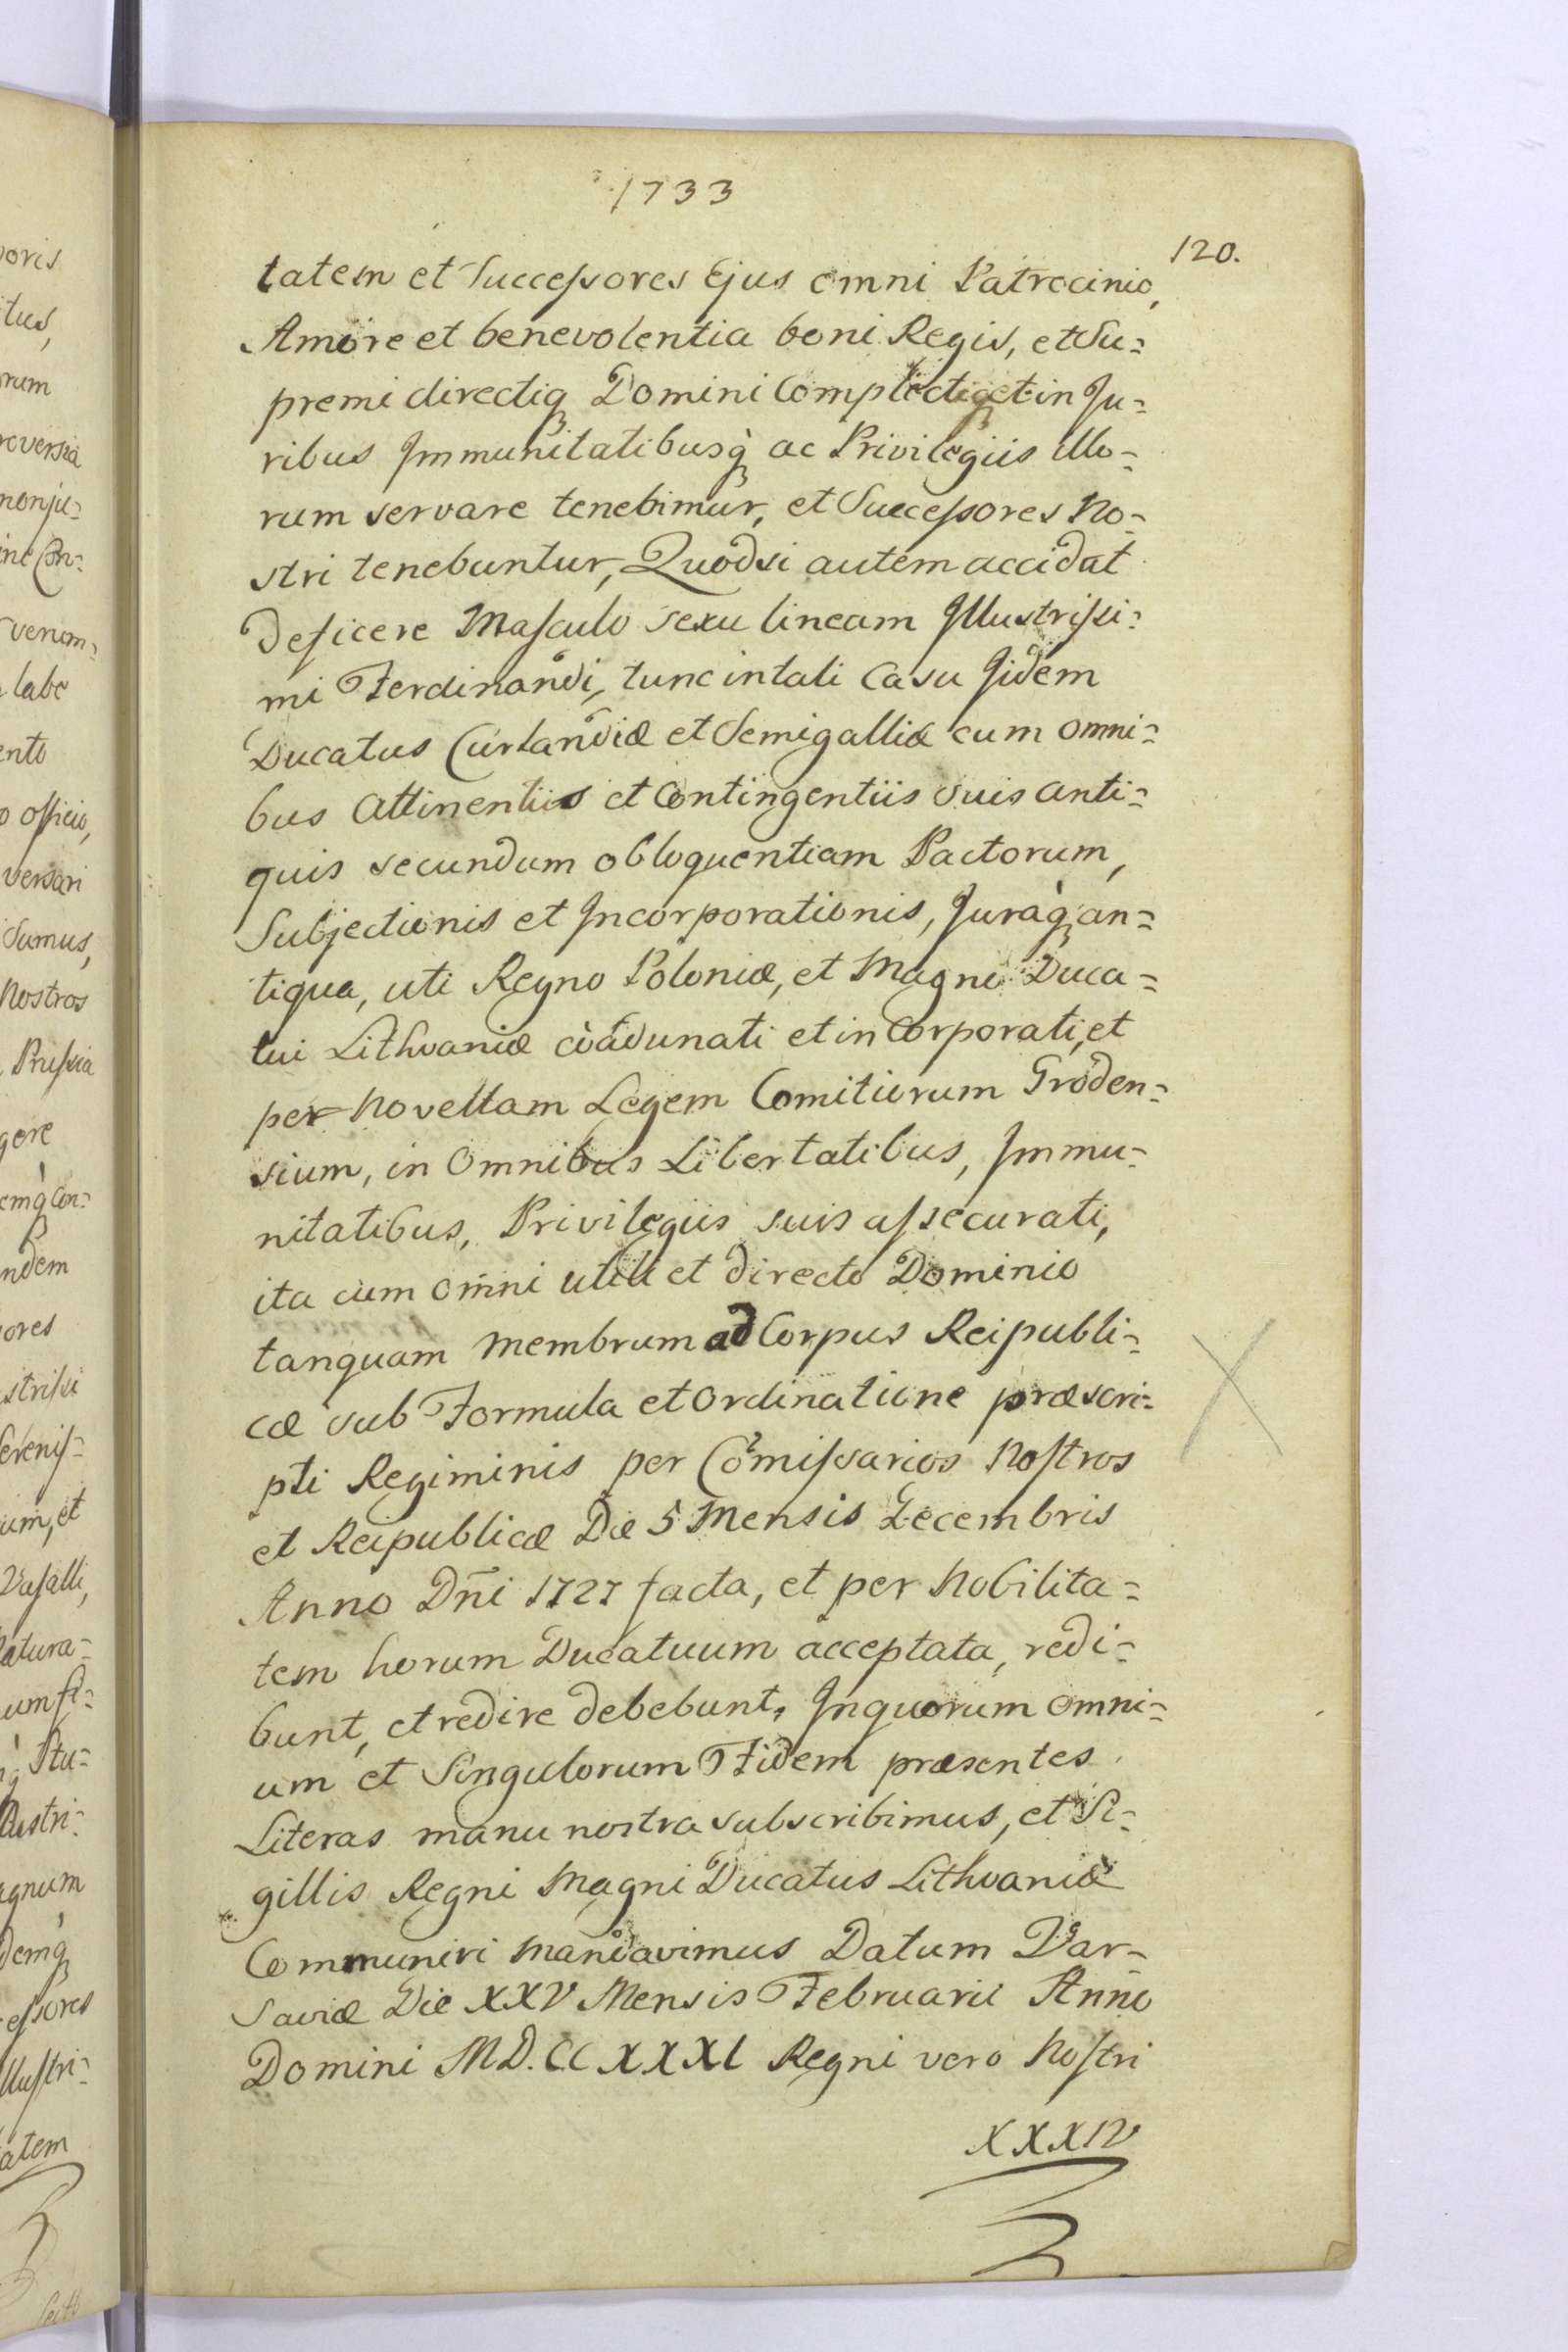 1733
120.
tatem et Successores Ejus omni Patrocinio,
Amore et benevolentia boni Regis, et Su=
premi directiq Domini Complectiq et in Ju=
ribus Immunitatibusq ac Privilegiis illo=
rum servare tenebimur, et Successores No=
stri tenebuntur, Quodsi autem accidat
deficere Masculo sexu lineam Illustrissi=
mi Ferdinandi, tunc in tali Casu Iidem
Ducatus Curlandiæ et Semigalliæ cum omni=
bus Attinentiis et Contingentiis suis anti=
quis secundum obloquentiam Pactorum,
Subjectionis et Incorporationis, Juraq an=
tiqua, uti Regno Poloniæ, et Magno Duca=
tui Lithvaniæ còadunati et in Corporati, et
per Novellam Legem Comitiorum Groden=
sium, in Omnibus Libertatibus, Immu=
nitatibus, Privilegiis suis assecurati,
ita cum omni utili et directo Dominio
tanquam membrum ad Corpus Reipubli=
cæ sub Formula et Ordinatione præscri=
pti Regiminis per Comissarios Nostros
et Reipublicæ Die 5 Mensis Decembris
Anno Dñi 1727 facta, et per Nobilita=
tem horum Ducatuum acceptata, redi=
bunt, et redire debebunt, Inquorum omni=
um et Singulorum Fidem præsentes
Literas manu nostra subscribimus, et Si=
gillis Regni Magni Ducatus Lithvaniæ
Communiri mandavimus Datum Var=
saviæ Die XXV Mensis Februarii Anno
Domini MD.CCXXXI Regni vero Nostri
XXXIV